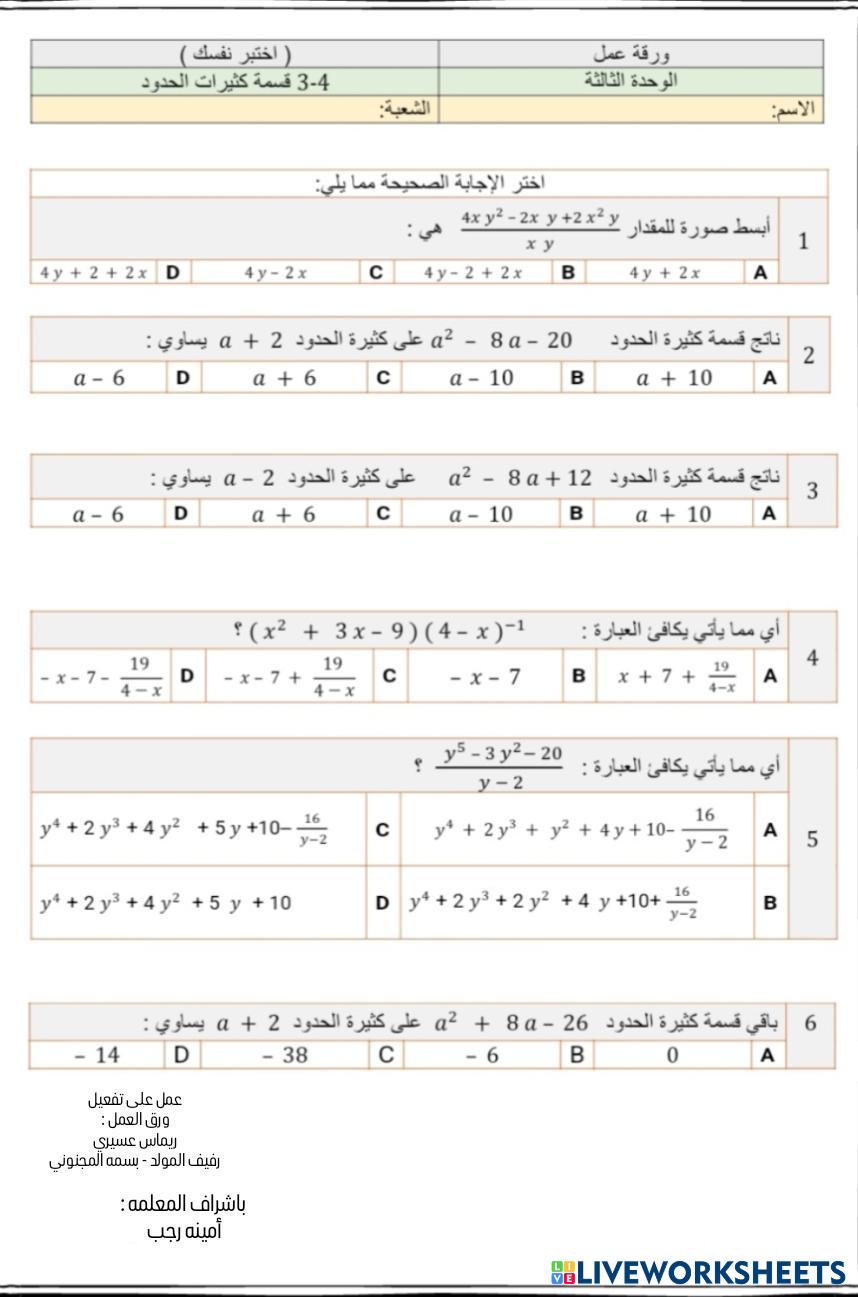 ورقة عمل ( اختبر نفسك )
الوحدة الثالثة 3-4 قسمة كثيرات الحدود
الاسم: الشعبة:
اختر الإجابة الصحيحة مما يلي:
1 أبسط صورة للمقدار (4x y² – 2x y + 2 x² y) / (x y) هي :
A 4y + 2x B 4y – 2 + 2x C 4y – 2x D 4y + 2 + 2x
2 ناتج قسمة كثيرة الحدود a² – 8a – 20 على كثيرة الحدود a + 2 يساوي :
A a + 10 B a – 10 C a + 6 D a – 6
3 ناتج قسمة كثيرة الحدود a² – 8a + 12 على كثيرة الحدود a – 2 يساوي :
A a + 10 B a – 10 C a + 6 D a – 6
4 أي مما يأتي يكافئ العبارة : (x² + 3x – 9)(4 – x)⁻¹ ؟
A x + 7 + 19/(4–x) B – x – 7 C – x – 7 + 19/(4 – x) D – x – 7 – 19/(4 – x)
5 أي مما يأتي يكافئ العبارة : (y⁵ – 3y² – 20) / (y – 2) ؟
A y⁴ + 2y³ + y² + 4y + 10 – 16/(y – 2) C y⁴ + 2y³ + 4y² + 5y + 10 – 16/(y–2)
B y⁴ + 2y³ + 2y² + 4y + 10 + 16/(y–2) D y⁴ + 2y³ + 4y² + 5y + 10
6 باقي قسمة كثيرة الحدود a² + 8a – 26 على كثيرة الحدود a + 2 يساوي :
A 0 B – 6 C – 38 D – 14
عمل على تفعيل
ورق العمل :
ريماس عسيري
رفيف المولد - بسمه المجنوني
باشراف المعلمه :
أمينه رجب
LIVE LIVEWORKSHEETS